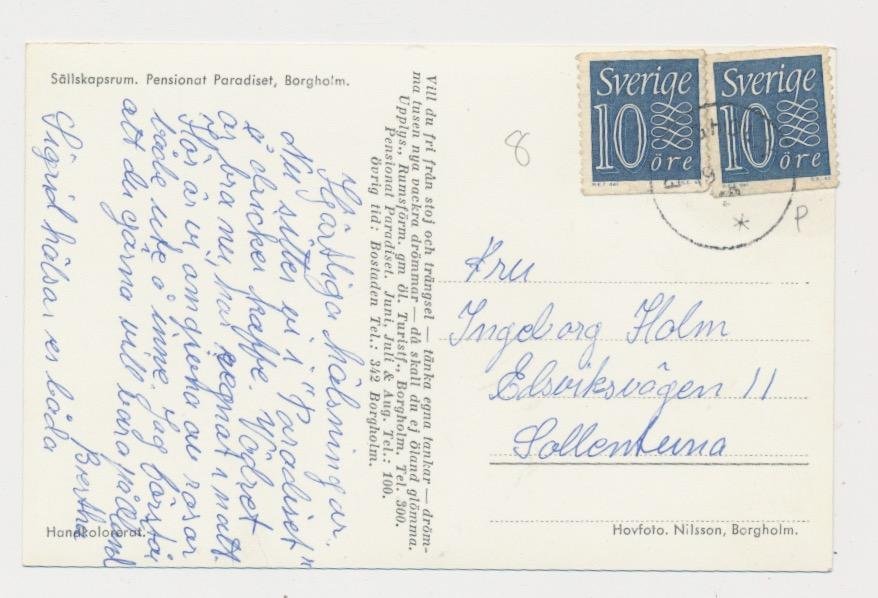 Sällskapsrum. Pensionat Paradiset, Borgholm.
Vill du fri från stoj och trängsel — tänka egna tankar — dröm-
ma tusen nya vackra drömmar — då skall du ej öland glömma.
Upplys., Rumsförm. gm Öl. Turistf., Borgholm. Tel. 300.
Pensionat Paradiset. Juni, Juli & Aug. Tel.: 100.
Övrig tid: Bostaden Tel.: 342 Borgholm.
Hjärtliga hälsningar.
Nu sitter vi i "Paradiset"
o' dricker kaffe. Vädret
är bra nu, har regnat i natt.
Här är vi omgivna av rosor
både ute o' inne. Jag förstår
att du gärna vill vara på Öland
Sigrid hälsar er båda
Bertha
Handkolorerat.
8
Sverige
10
öre
Sverige
10
öre
P
Fru
Ingeborg Holm
Edsviksvägen 11
Sollentuna
Hovfoto. Nilsson, Borgholm.